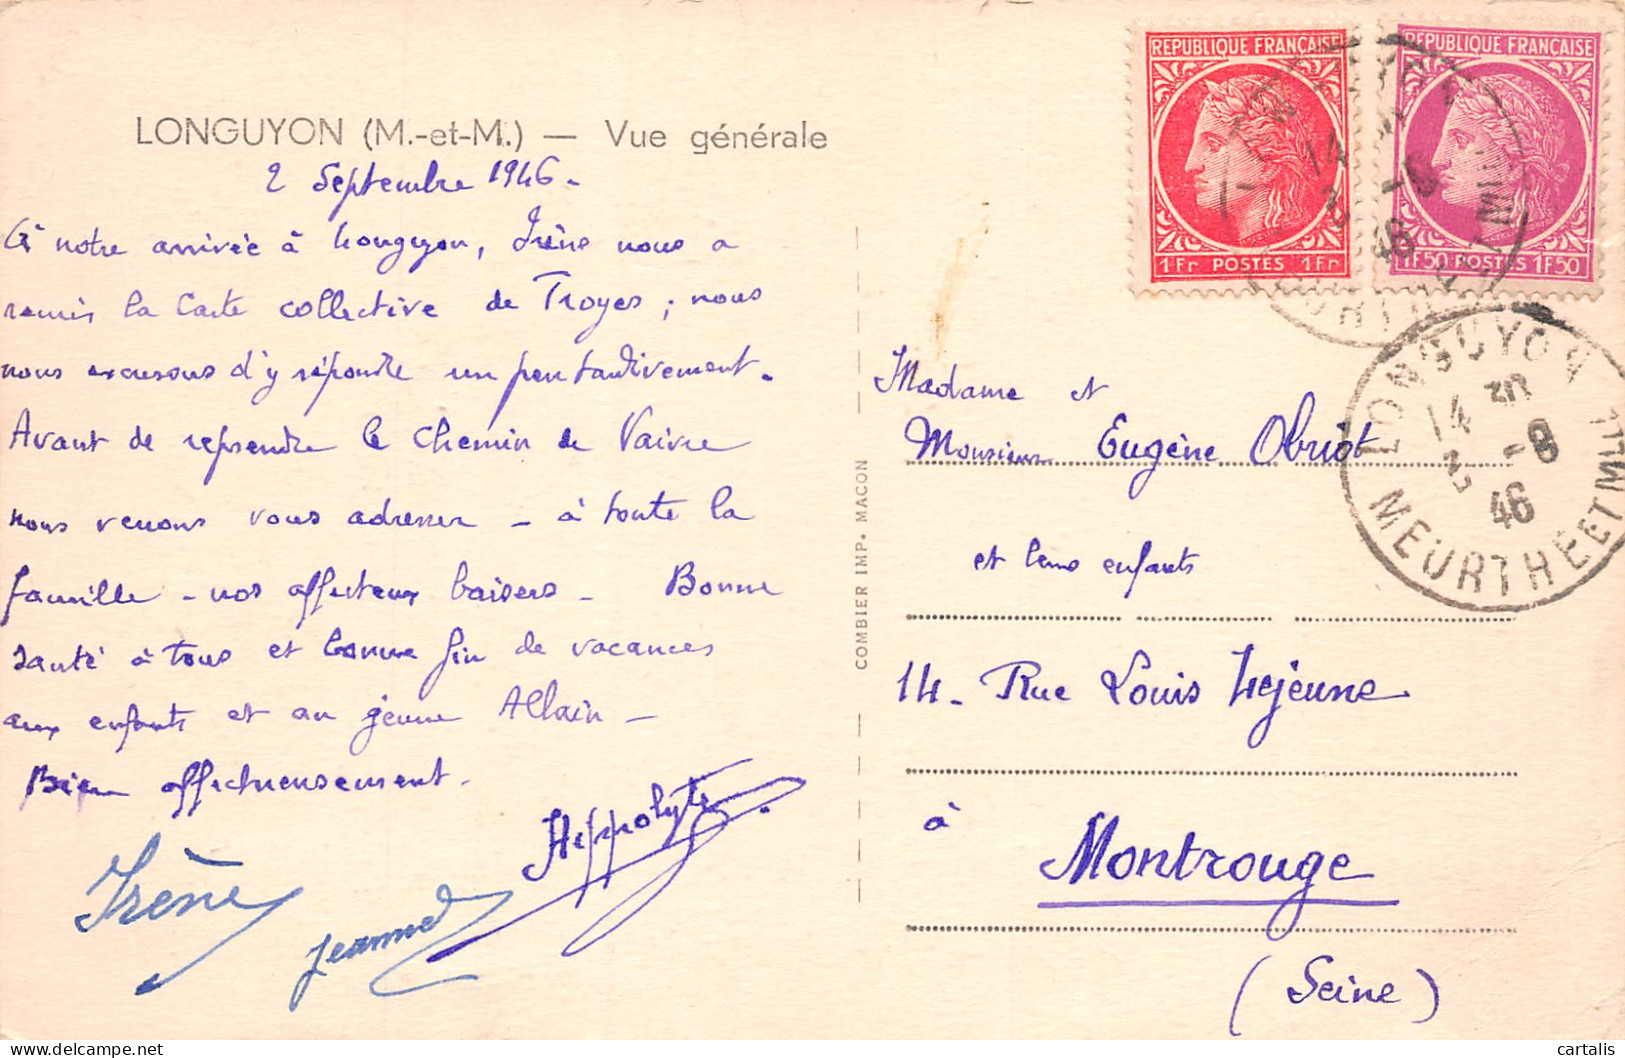 LONGUYON (M.-et-M.) — Vue générale
2 Septembre 1946 -
A notre arrivée à Longuyon, Irène nous a
remis la Carte collective de Troyes ; nous
nous excusons d'y répondre un peu tardivement.
Avant de reprendre le chemin de Vaivre
nous venons vous adresser - à toute la
famille - nos affectueux baisers - Bonne
santé à tous et bonne fin de vacances
aux enfants et au jeune Allain -
Bien affectueusement.
Hippolyte
Irène
Jeanne
COMBIER IMP. MACON
REPUBLIQUE FRANÇAISE
1 Fr POSTES 1 Fr
REPUBLIQUE FRANÇAISE
1F50 POSTES 1F50
LONGUYON
14 30
3 - 9
46
MEURTHE ET MLLE
Madame et
Monsieur Eugène Obriot
et leurs enfants
14 - Rue Louis Lejeune
à
Montrouge
(Seine)
cartalis